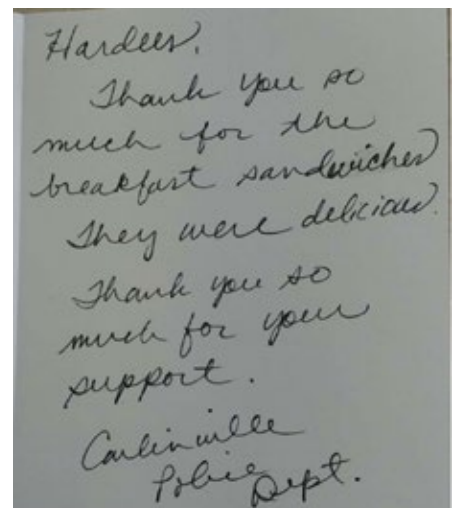 Hardees,
Thank you so
much for the
breakfast sandwiches
They were delicious.
Thank you so
much for your
support.
Carlinville
Police Dept.